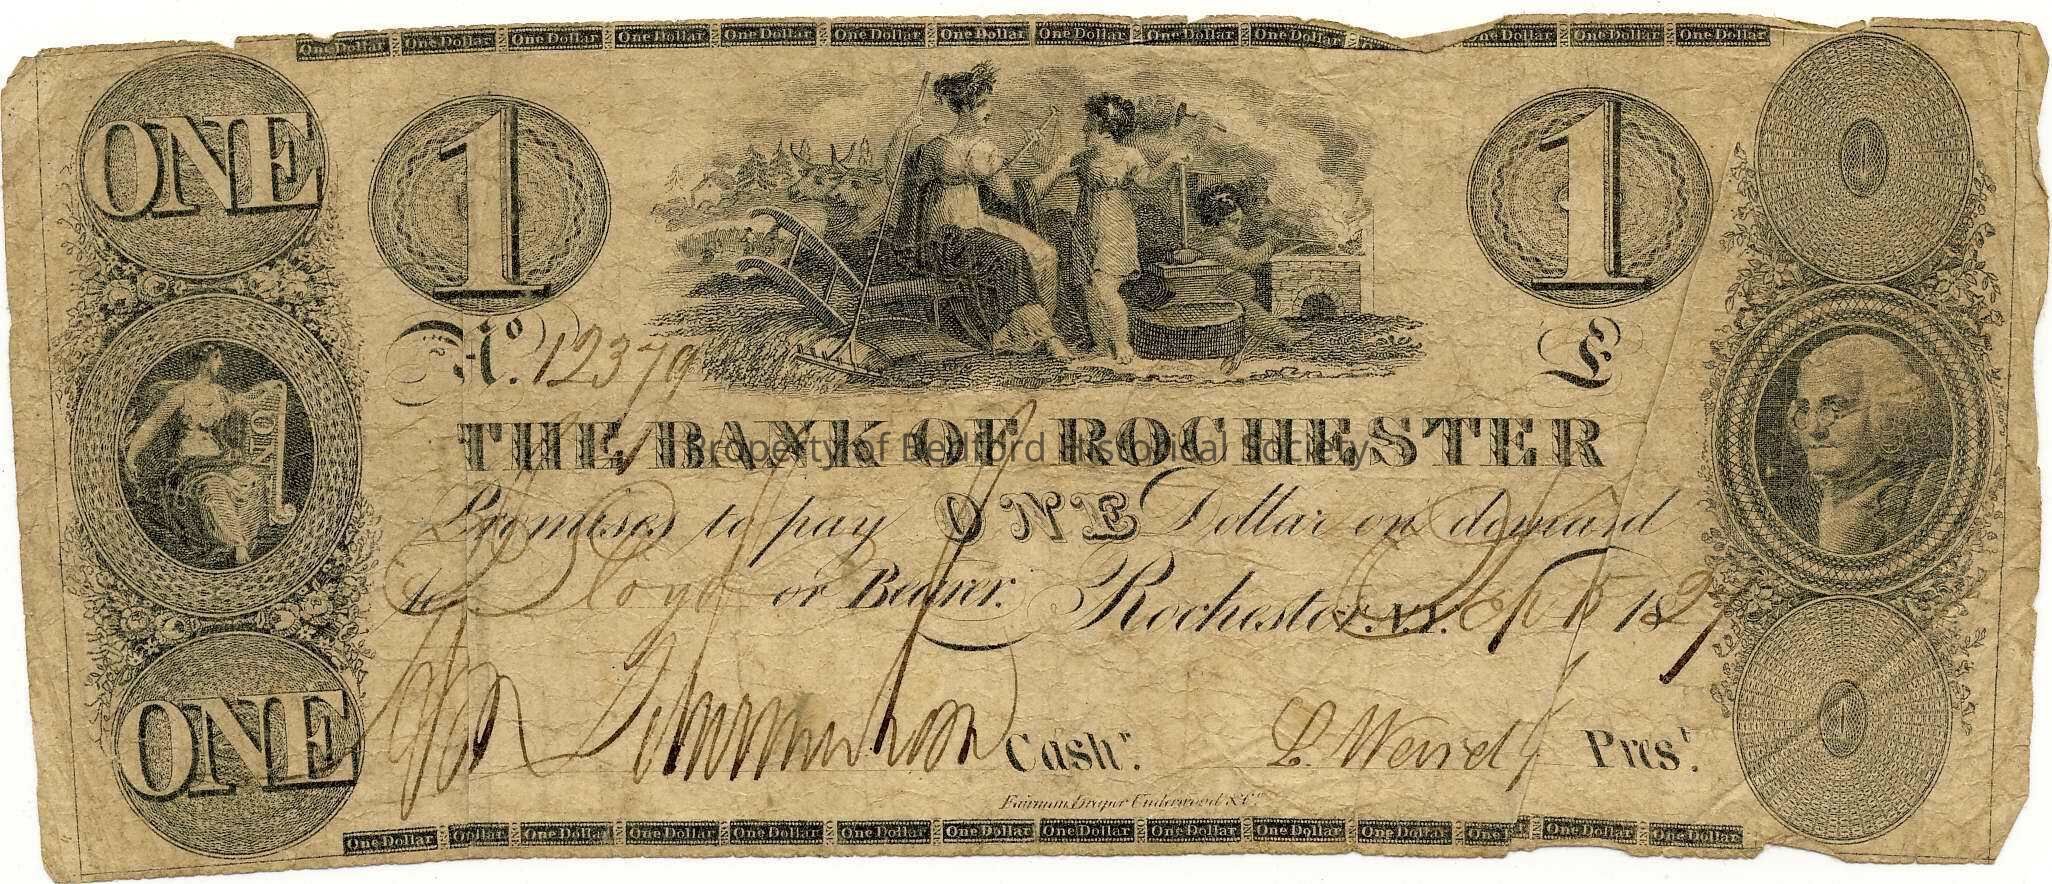 One Dollar One Dollar One Dollar One Dollar One Dollar One Dollar One Dollar One Dollar One Dollar One Dollar One Dollar One Dollar One Dollar
ONE
1
1
1
No. 12379
ONE
THE BANK OF ROCHESTER
Property of Bedford Historical Society
Promises to pay ONE Dollar on demand
to Lloyd or Bearer. Rochester N.Y. Sep 5 1827
ONE
1
Cashr. L. Ward Jr Prest.
Fairman, Draper Underwood & Co.
One Dollar One Dollar One Dollar One Dollar One Dollar One Dollar One Dollar One Dollar One Dollar One Dollar One Dollar One One Dollar One Dollar